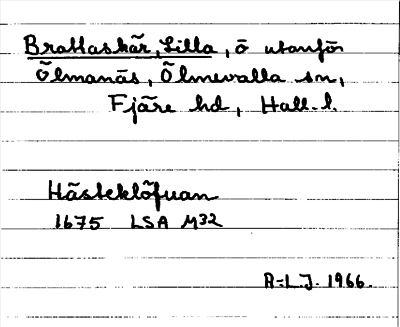 Brattaskär, Lilla, ö utanför
Ölmanäs, Ölmevalla sn,
Fjäre hd, Hall. l.
Hästeklöfuan
1675 LSA M32
R=L.J. 1966.